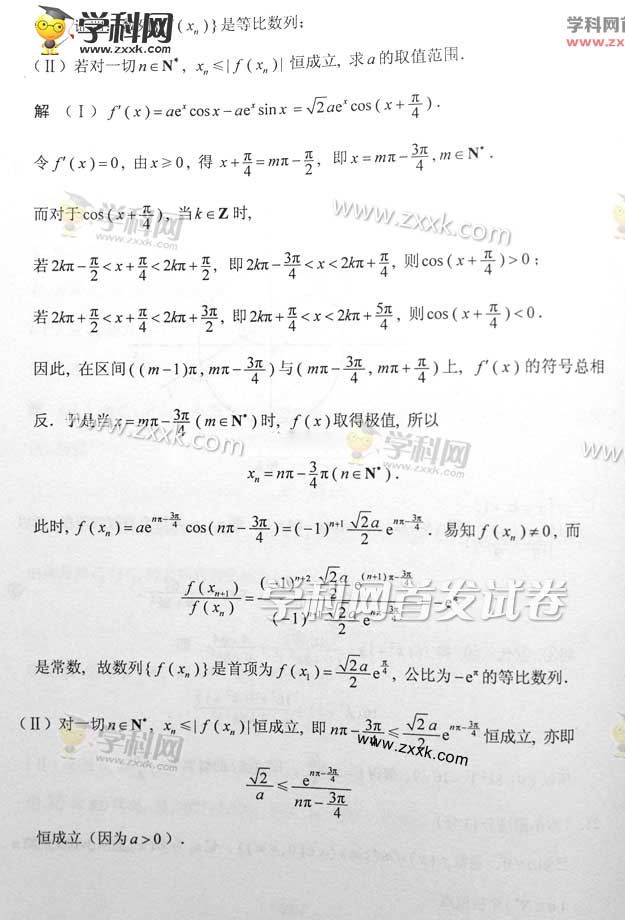 学科网 www.zxxk.com
学科网 www.zxxk.com
(xₙ)}是等比数列;
(Ⅱ) 若对一切n∈N*, xₙ≤|f(xₙ)| 恒成立, 求a的取值范围.
解 (Ⅰ) f′(x)=aeˣcosx−aeˣsinx=√2aeˣcos(x+π/4).
令f′(x)=0, 由x≥0, 得 x+π/4=mπ−π/2, 即x=mπ−3π/4, m∈N*.
而对于cos(x+π/4), 当k∈Z时,
若2kπ−π/2<x+π/4<2kπ+π/2, 即2kπ−3π/4<x<2kπ+π/4, 则cos(x+π/4)>0;
若2kπ+π/2<x+π/4<2kπ+3π/2, 即2kπ+π/4<x<2kπ+5π/4, 则cos(x+π/4)<0.
因此, 在区间((m−1)π, mπ−3π/4)与(mπ−3π/4, mπ+π/4)上, f′(x)的符号总相
反. 于是当x=mπ−3π/4(m∈N*)时, f(x)取得极值, 所以
xₙ=nπ−3/4π(n∈N*).
此时, f(xₙ)=ae^(nπ−3π/4)cos(nπ−3π/4)=(−1)ⁿ⁺¹√2a/2 e^(nπ−3π/4). 易知f(xₙ)≠0, 而
f(xₙ₊₁)/f(xₙ)=((−1)ⁿ⁺²√2a/2 e^((n+1)π−3π/4))/((−1)ⁿ⁺¹√2a/2 e^(nπ−3π/4))=−e^π
学科网首发试卷
是常数, 故数列{f(xₙ)}是首项为f(x₁)=√2a/2 e^(π/4), 公比为−e^π的等比数列.
(Ⅱ) 对一切n∈N*, xₙ≤|f(xₙ)|恒成立, 即nπ−3π/4≤√2a/2 e^(nπ−3π/4)恒成立, 亦即
√2/a≤e^(nπ−3π/4)/(nπ−3π/4)
恒成立(因为a>0).